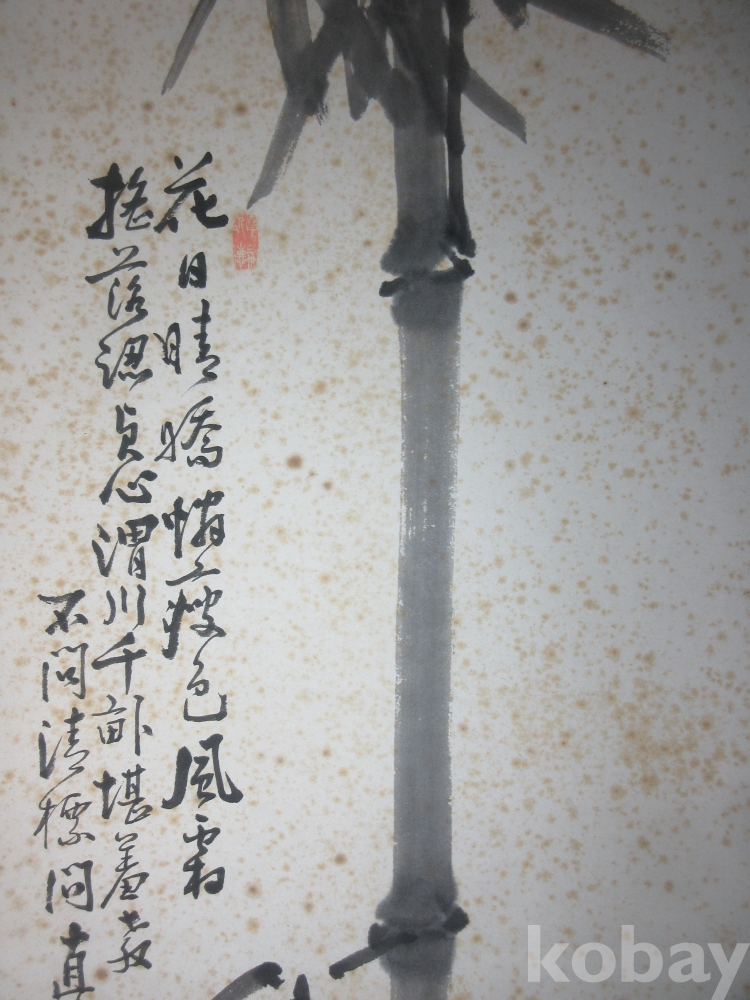 花日晴嬌憎瘦色風霜
搖落認貞心渭川千畝堪羞殺
不問清標問直
kobay